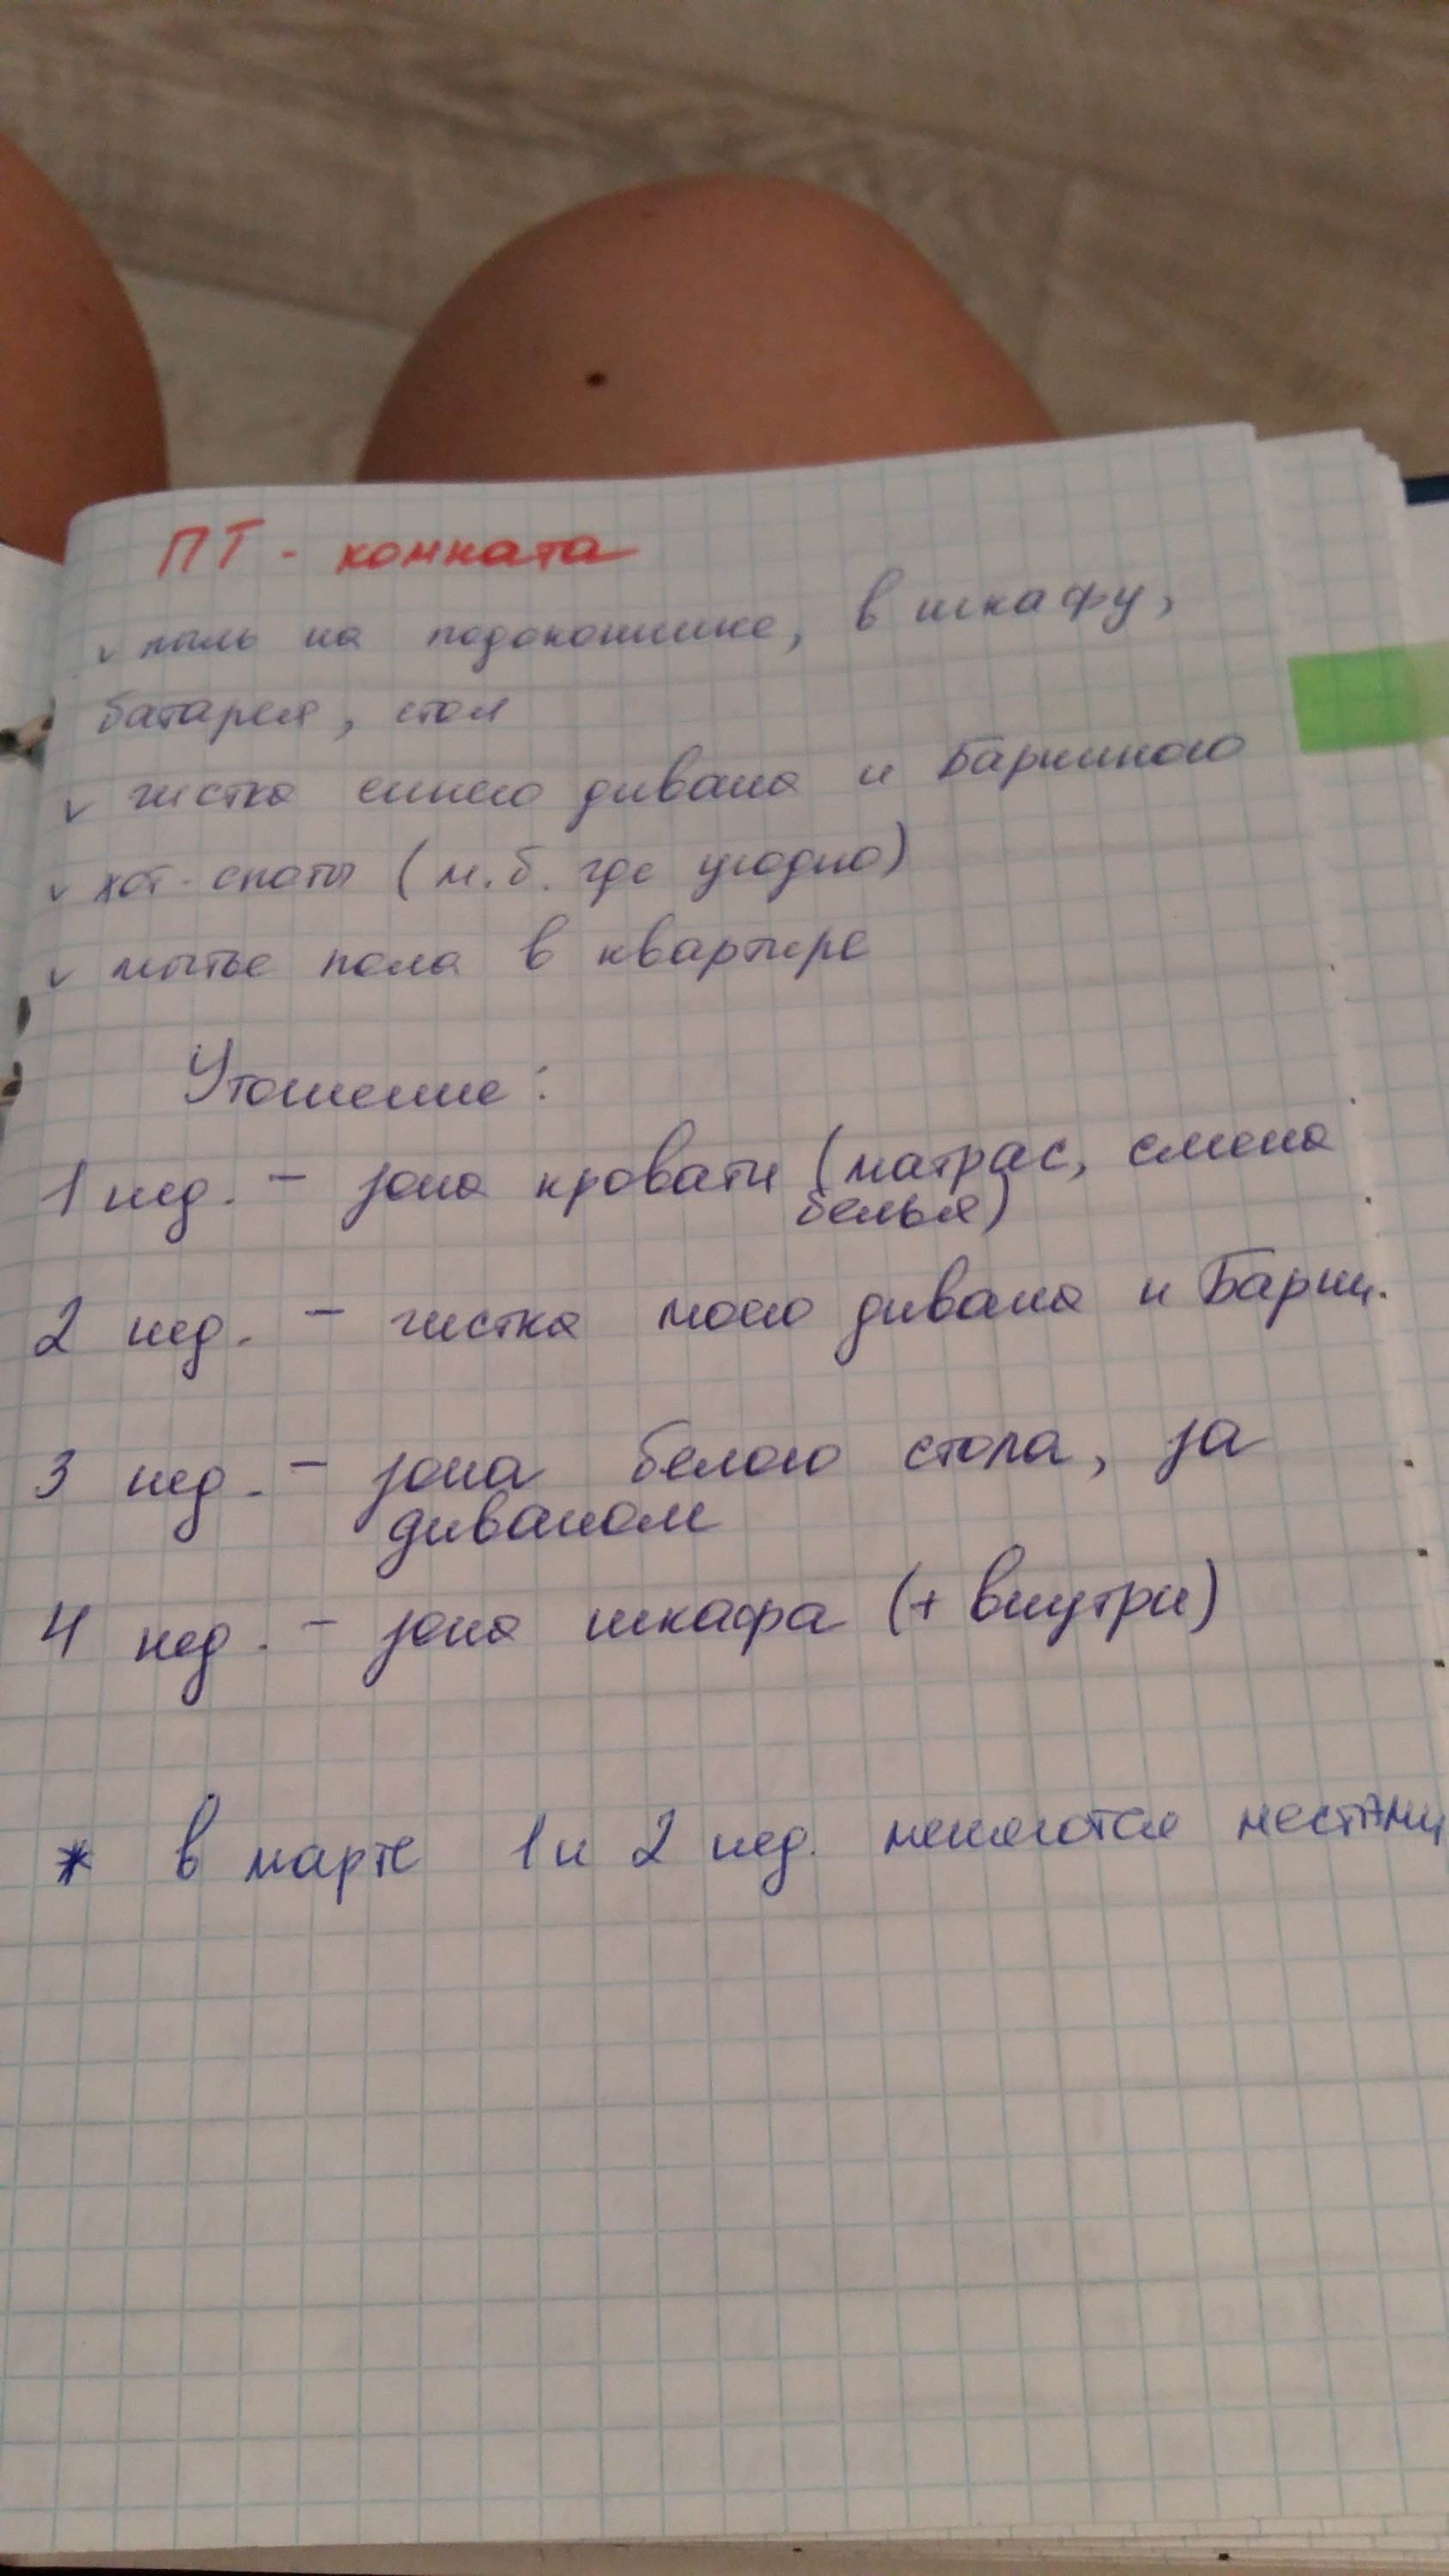 ПТ - комната
v пыль на подоконнике, в шкафу,
батарея, стол
v чистка синего дивана и Барниного
v хот-споты (м.б. где угодно)
v мытье пола в квартире
Уточнение:
1 нед. - зона кровати (матрас, смена
белья)
2 нед. - чистка моего дивана и Барни.
3 нед. - зона белого стола, за
диваном
4 нед. - зона шкафа (+ внутри)
* в марте 1 и 2 нед. меняются местами